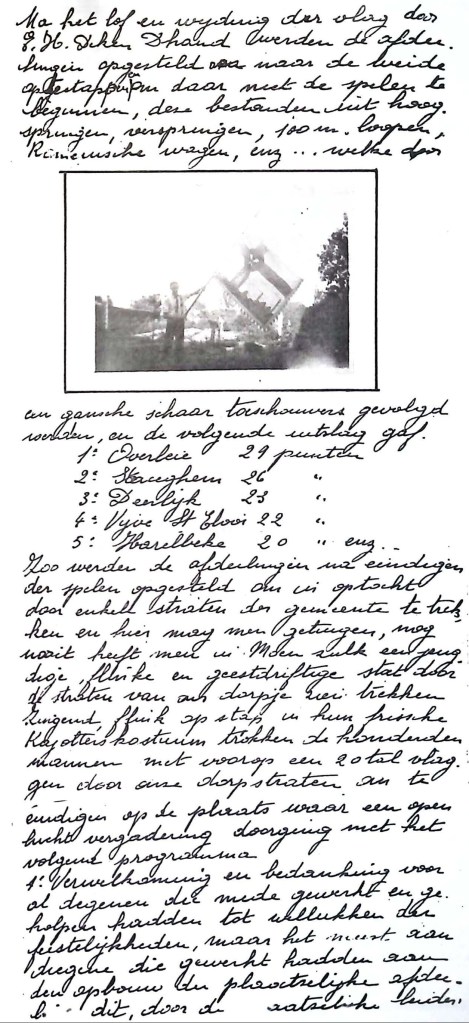 Na het lof en wijding der vlag door
E. H. Deken Dhand werden de afdee-
lingen opgesteld naar de weide
opgestapt om daar met de spelen te
beginnen, deze bestonden uit hoog-
springen, verspringen, 100 m. loopen,
Romeinsche wagen, enz ... welke door
een gansche schaar toeschouwers gevolgd
werden, en de volgende uitslag gaf.
1e Overleie 29 punten
2e Staceghem 26 "
3e Deerlijk 23 "
4e Vijve St Elooi 22 "
5e Harelbeke 20 " enz..
Zoo werden de afdeelingen na eindigen
der spelen opgesteld om in optocht
door enkele straten der gemeente te trek-
ken en hier mag men getuigen, nog
nooit heeft men in Moen zulk een jeug-
dige, flinke en geestdriftige stoet door
de straten van ons dorpje zien trekken
Zingend, flink op stap in hun frissche
Kajotterskostuum trokken de honderden
mannen met voorop een 20 tal vlag-
gen door onze dorpstraten om te
eindigen op de plaats waar een open
lucht vergadering doorging met het
volgend programma
1e Verwelkoming en bedanking voor
al degenen die mede gewerkt en ge-
holpen hadden tot wellukken der
feestelijkheden, maar het meest aan
diegene die gewerkt hadden aan
den opbouw der plaatselijke afdee-
dit, door de leider